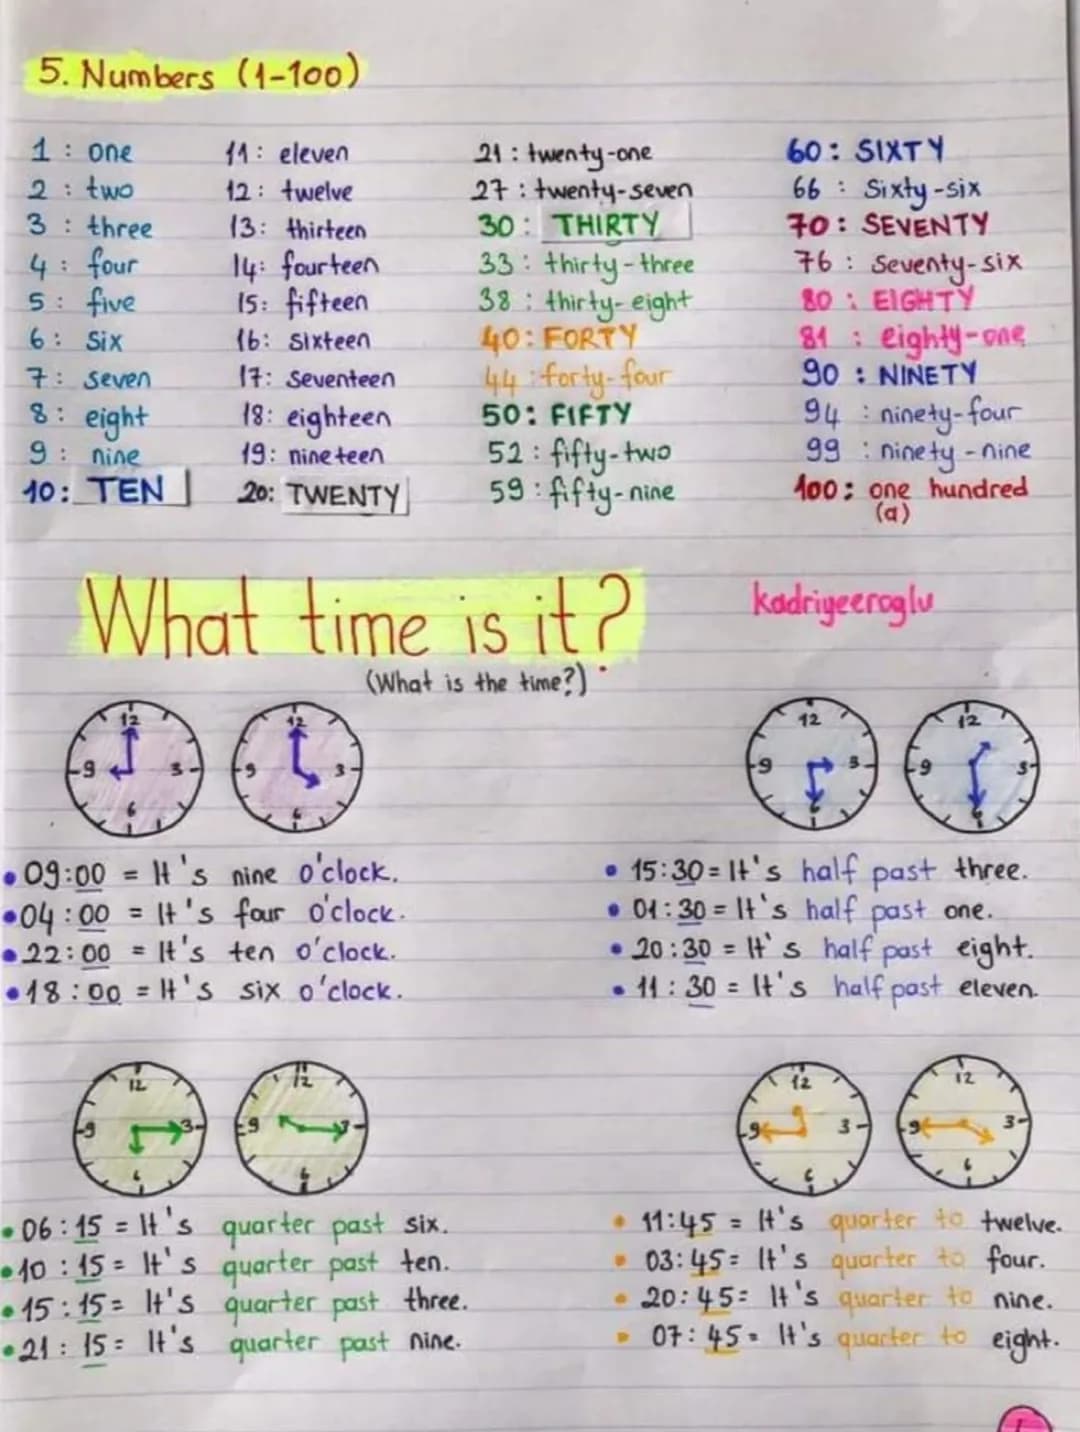 5. Numbers (1-100)
1 : one
2 : two
3 : three
4 : four
5 : five
6 : six
7 : seven
8 : eight
9 : nine
10 : TEN
11 : eleven
12 : twelve
13 : thirteen
14 : fourteen
15 : fifteen
16 : sixteen
17 : seventeen
18 : eighteen
19 : nineteen
20 : TWENTY
21 : twenty-one
27 : twenty-seven
30 : THIRTY
33 : thirty-three
38 : thirty-eight
40 : FORTY
44 : forty-four
50 : FIFTY
52 : fifty-two
59 : fifty-nine
60 : SIXTY
66 : Sixty-six
70 : SEVENTY
76 : seventy-six
80 : EIGHTY
81 : eighty-one
90 : NINETY
94 : ninety-four
99 : ninety-nine
100 : one hundred
(a)
What time is it?
kadriyeeroglu
(What is the time?)
12 3 6 9
12 3 6 9
12 3 6 9
12 3 6 9
• 09:00 = It's nine o'clock.
• 04:00 = It's four o'clock.
• 22:00 = It's ten o'clock.
• 18:00 = It's six o'clock.
• 15:30 = It's half past three.
• 01:30 = It's half past one.
• 20:30 = It's half past eight.
• 11:30 = It's half past eleven.
12 3 6 9
12 3 6 9
12 3 6 9
12 3 6 9
• 06:15 = It's quarter past six.
• 10:15 = It's quarter past ten.
• 15:15 = It's quarter past three.
• 21:15 = It's quarter past nine.
• 11:45 = It's quarter to twelve.
• 03:45 = It's quarter to four.
• 20:45 = It's quarter to nine.
• 07:45 = It's quarter to eight.